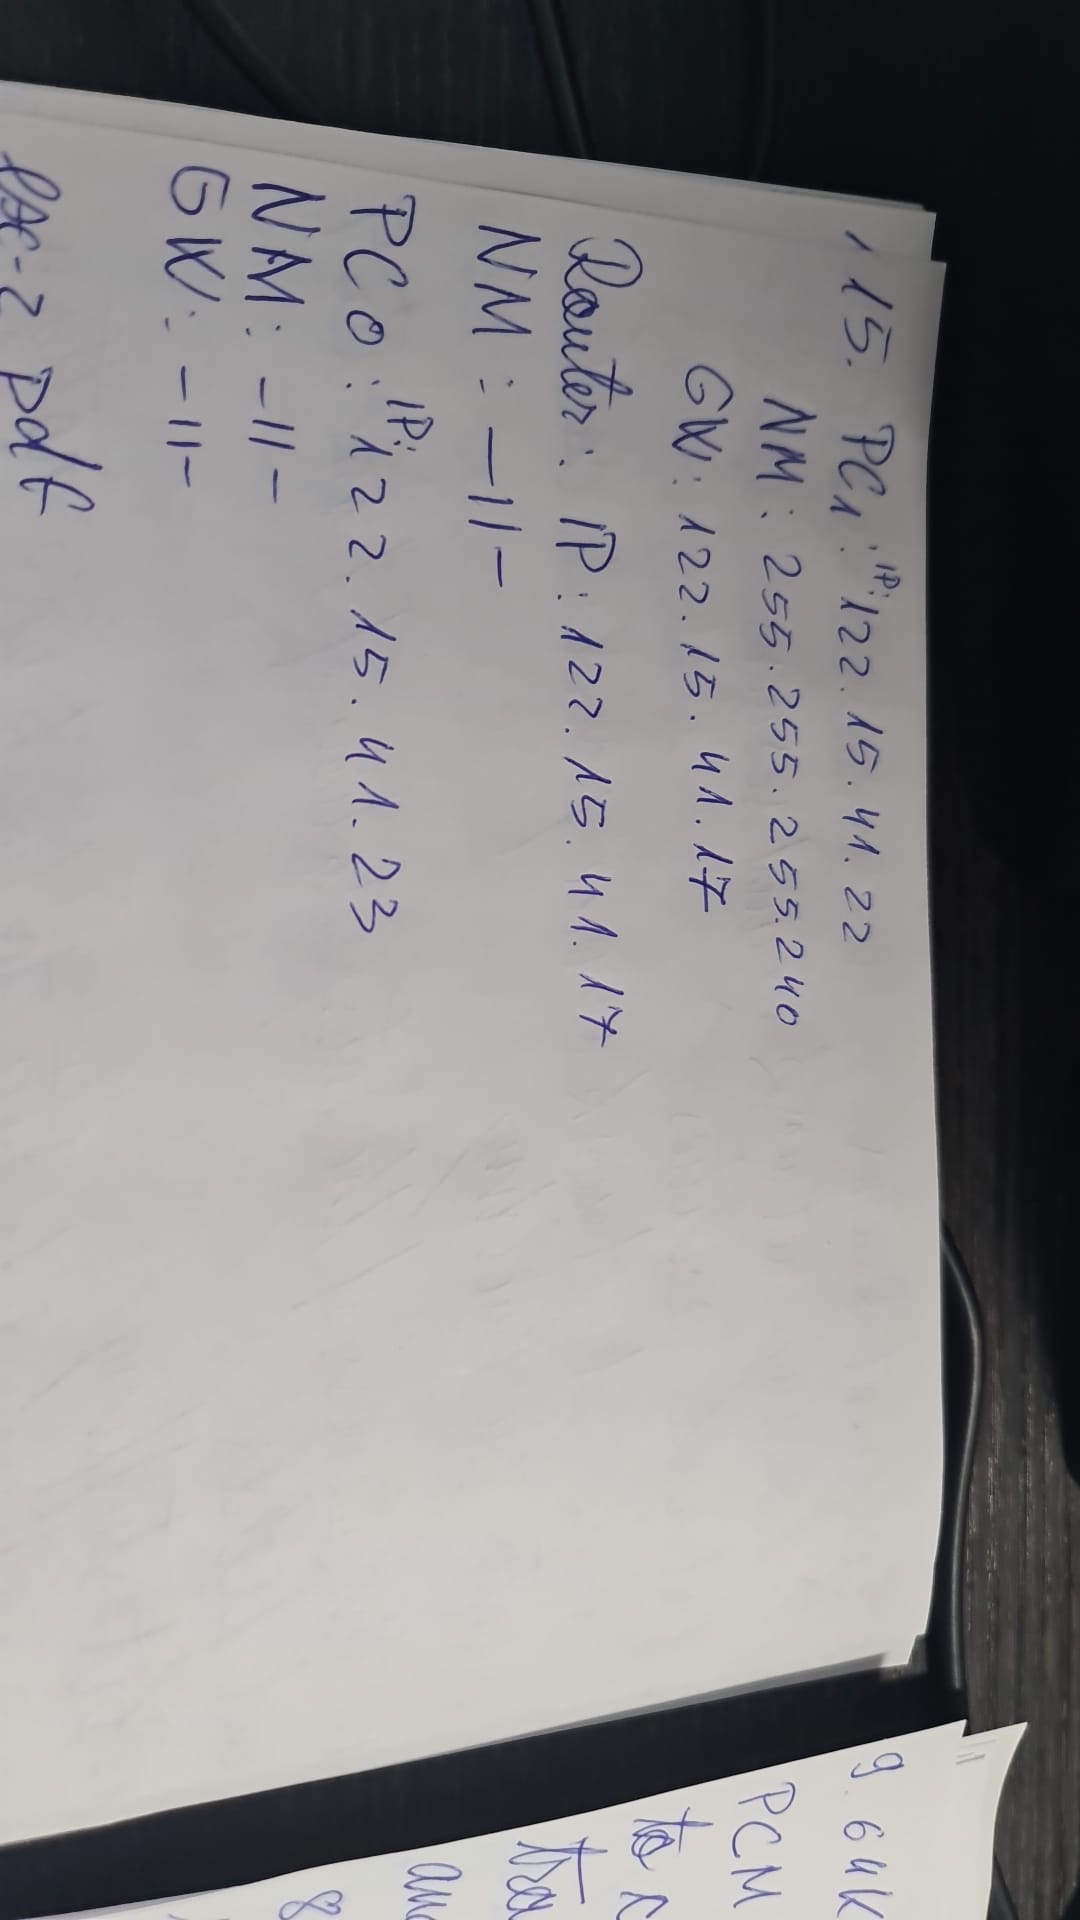 15. PC1: IP: 122.15.41.22
NM: 255.255.255.240
GW: 122.15.41.17
Router: IP: 122.15.41.17
NM: -||-
PC0: IP: 122.15.41.23
NM: -||-
GW: -||-
pdf
9. 64K
PCM
to
8